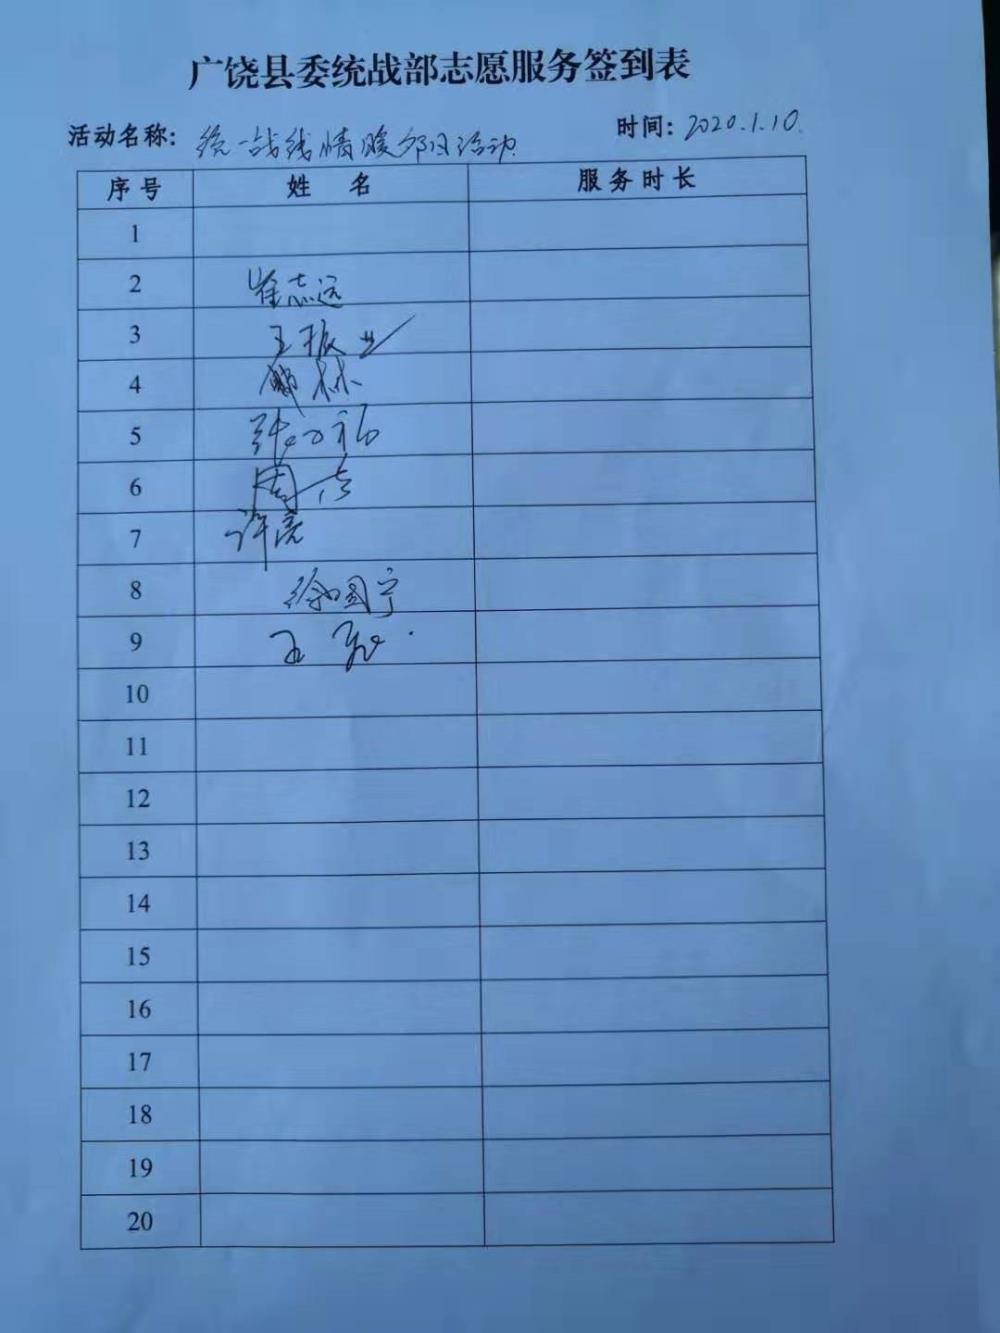 广饶县委统战部志愿服务签到表
活动名称: 统一战线情暖 活动 时间: 2020.1.10.
序号 姓 名 服务时长
1
2 崔志远
3 王振业
4 林
5 张万福
6 周洁
7 许亮
8 徐国宁
9 王
10
11
12
13
14
15
16
17
18
19
20